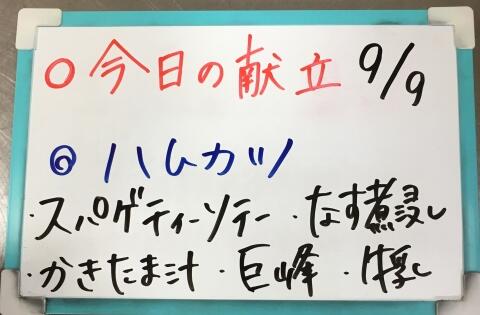 ○今日の献立 9/9
◎ハムカツ
・スパゲティーソテー・なす煮浸し
・かきたま汁・巨峰・牛乳